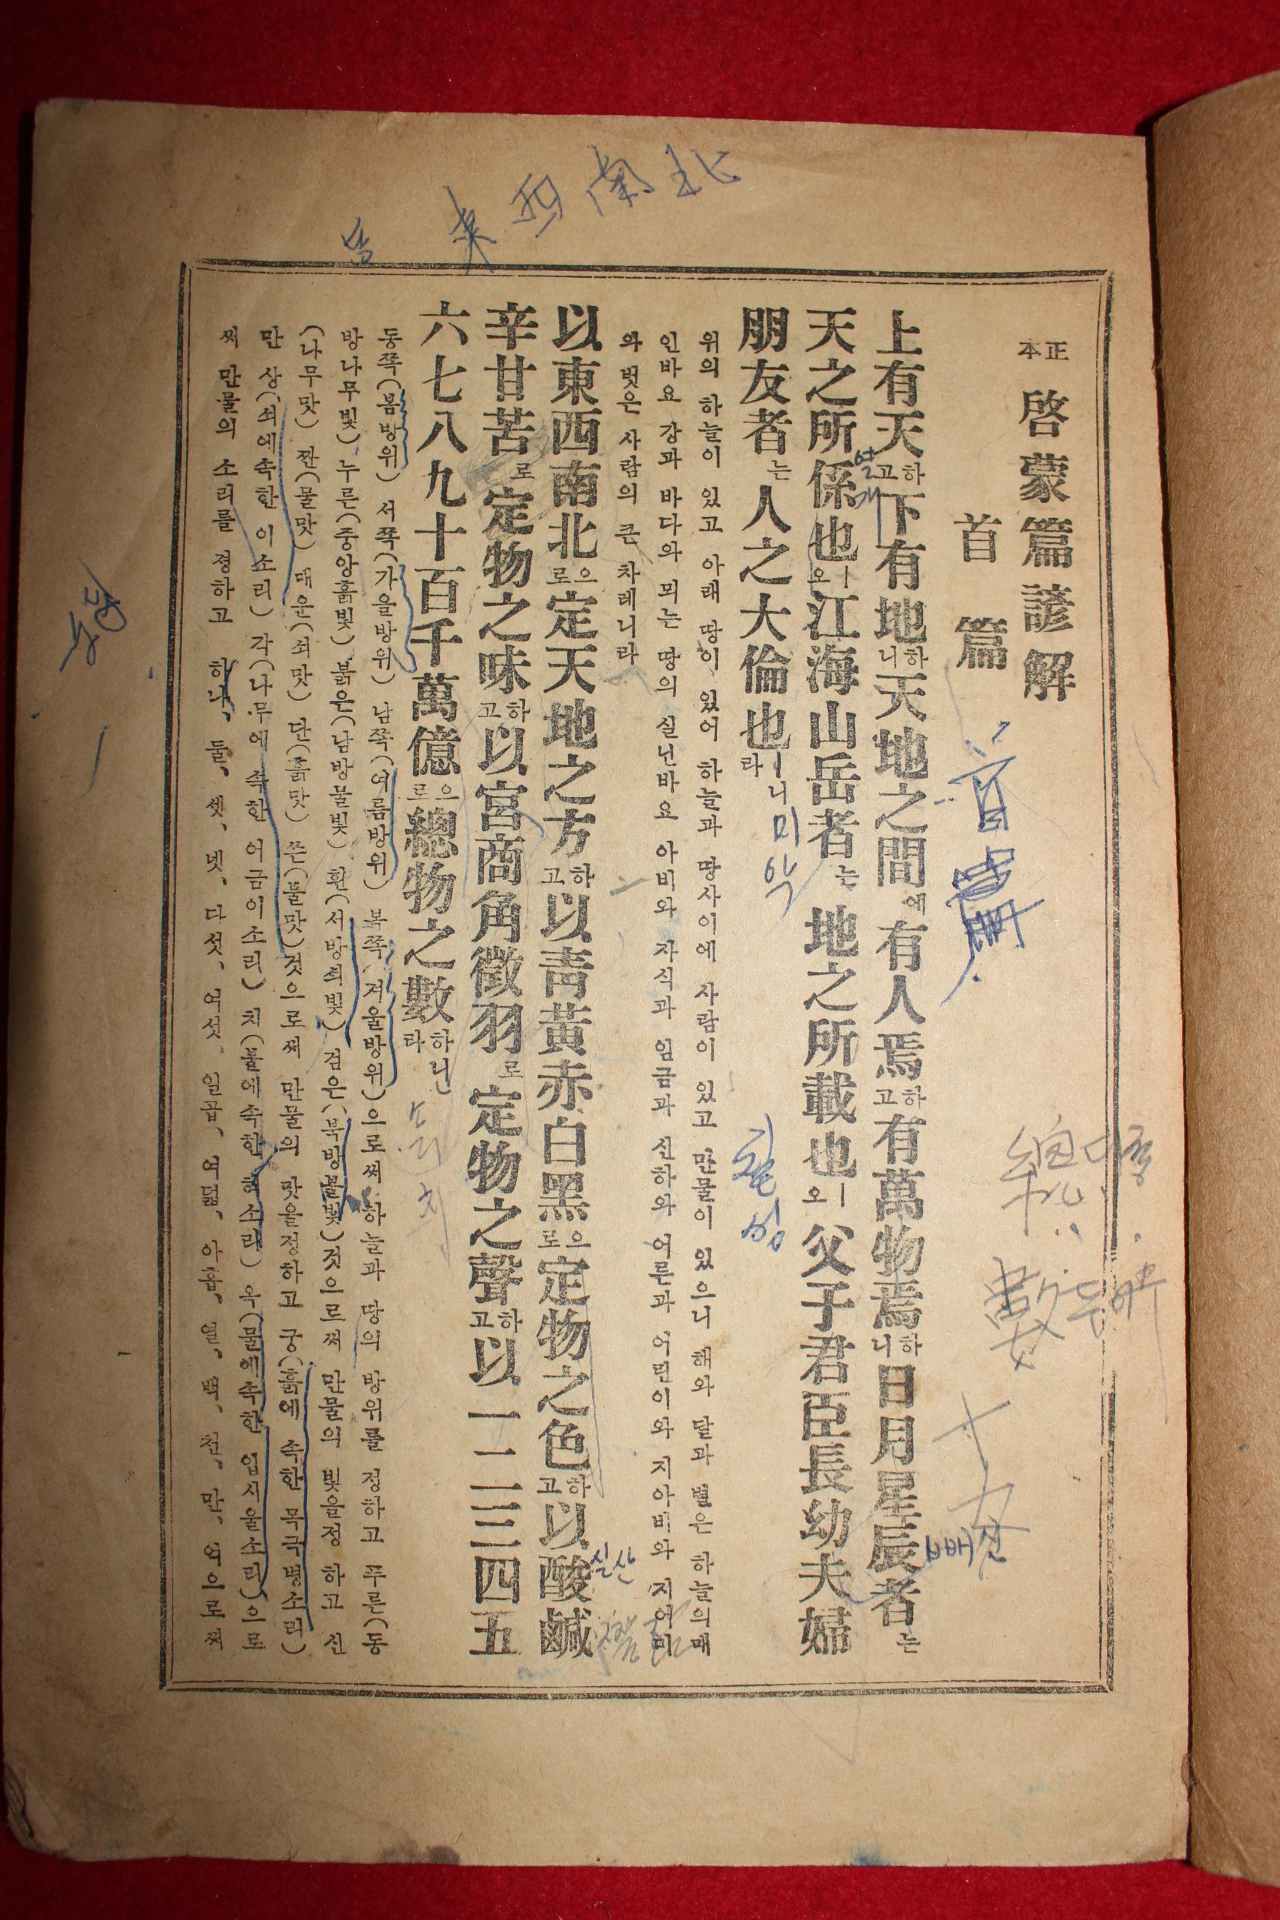 正本 啓蒙篇諺解
首篇
上有天하고下有地하니天地之間에有人焉하고有萬物焉하니日月星辰者는
天之所係也ㅣ오江海山岳者는地之所載也ㅣ오父子君臣長幼夫婦
朋友者는人之大倫也ㅣ니라
위의 하늘이 있고 아래 땅이 있어 하늘과 땅사이에 사람이 있고 만물이 있으니 해와 달과 별은 하늘의매
인바요 강과 바다와 뫼는 땅의 실닌바요 아비와 자식과 임금과 신하와 어른과 어린이와 지아비와 지어미
와 벗은 사람의 큰 차례니라
以東西南北으로定天地之方하고以靑黃赤白黑으로定物之色하고以酸鹹
辛甘苦로定物之味하고以宮商角徵羽로定物之聲하고以一二三四五
六七八九十百千萬億으로總物之數하나니라
동쪽(봄방위) 서쪽(가을방위) 남쪽(여름방위) 북쪽(겨울방위)으로써 하늘과 땅의 방위를 정하고 푸른(동
방나무빛) 누른(중앙흙빛) 붉은(남방불빛) 흰(서방쇠빛) 검은(북방물빛)것으로써 만물의 빛을정 하고 신
(나무맛) 짠(물맛) 매운(쇠맛) 단(흙맛) 쓴(불맛)것으로써 만물의 맛을정하고 궁(흙에 속한 목국병소리)
만 상(쇠에속한 이소리) 각(나무에 속한 어금이소리) 치(불에속한 혀소리) 우(물에속한 입시울소리)으로
써 만물의 소리를 정하고 하나、둘、셋、넷、다섯、여섯、일곱、여덟、아홉、열、백、천、만、억으로써
東西南北
首
열개
미약
칠성
실산